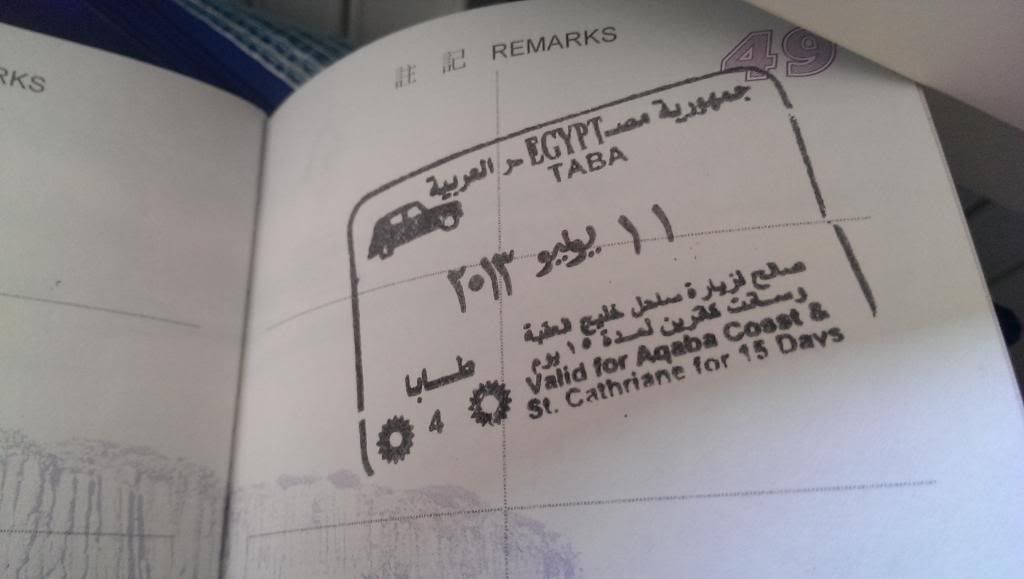 RKS
註 記 REMARKS
49
جمهورية مصـ EGYPT ـر العربية
TABA
١١ يوليو ٢٠١٣
صالح لزيارة ساحل خليج العقبة
وسانت كاترين لمدة ١٥ يوم
Valid for Aqaba Coast &
St. Cathriane for 15 Days
طـــابا
4